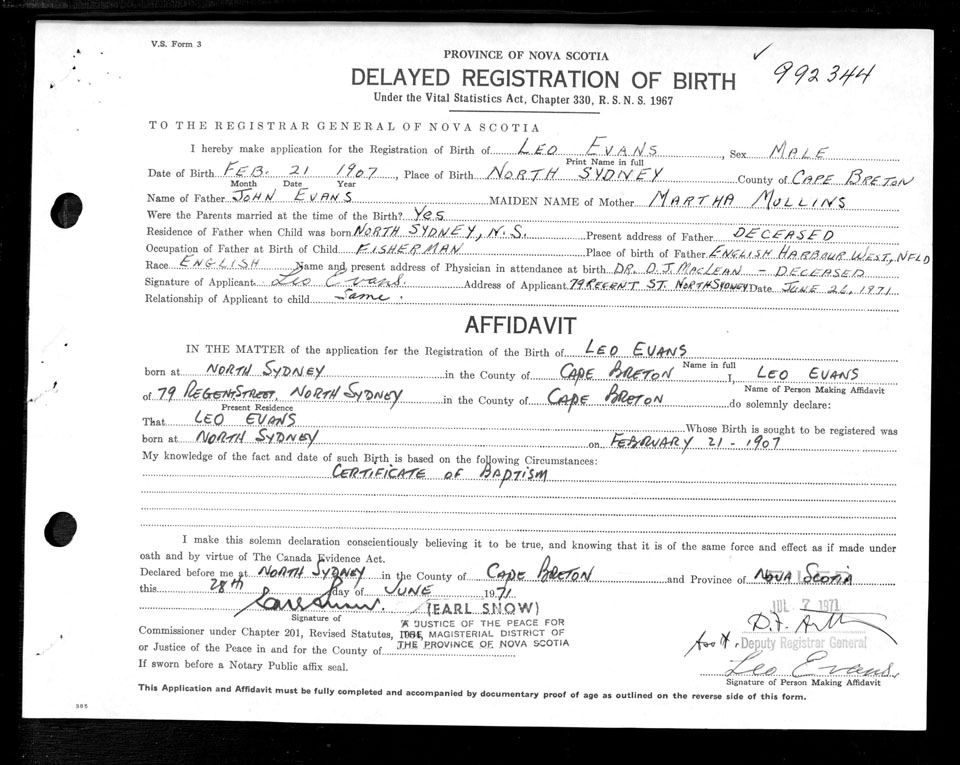 V.S. Form 3
PROVINCE OF NOVA SCOTIA
✓ 992344
DELAYED REGISTRATION OF BIRTH
Under the Vital Statistics Act, Chapter 330, R.S.N.S. 1967
TO THE REGISTRAR GENERAL OF NOVA SCOTIA
I hereby make application for the Registration of Birth of LEO EVANS, Sex MALE
Print Name in full
Date of Birth FEB. 21 1907, Place of Birth NORTH SYDNEY County of CAPE BRETON
Month Date Year
Name of Father JOHN EVANS MAIDEN NAME of Mother MARTHA MULLINS
Were the Parents married at the time of the Birth? Yes
Residence of Father when Child was born NORTH SYDNEY, N.S. Present address of Father DECEASED
Occupation of Father at Birth of Child FISHERMAN Place of birth of Father ENGLISH HARBOUR WEST, NFLD
Race ENGLISH Name and present address of Physician in attendance at birth DR. D.J. MACLEAN - DECEASED
Signature of Applicant Leo Evans. Address of Applicant 79 REGENT ST. NORTH SYDNEY Date JUNE 26, 1971
Relationship of Applicant to child Same.
AFFIDAVIT
IN THE MATTER of the application for the Registration of the Birth of LEO EVANS
Name in full
born at NORTH SYDNEY in the County of CAPE BRETON I, LEO EVANS
Name of Person Making Affidavit
of 79 REGENT STREET, NORTH SYDNEY in the County of CAPE BRETON do solemnly declare:
Present Residence
That LEO EVANS Whose Birth is sought to be registered was
born at NORTH SYDNEY on FEBRUARY 21 - 1907
My knowledge of the fact and date of such Birth is based on the following Circumstances:
CERTIFICATE OF BAPTISM
I make this solemn declaration conscientiously believing it to be true, and knowing that it is of the same force and effect as if made under
oath and by virtue of The Canada Evidence Act.
Declared before me at NORTH SYDNEY in the County of CAPE BRETON and Province of NOVA SCOTIA
this 28th day of JUNE 1971
JUL 7 1971
(EARL SNOW)
Signature of
A JUSTICE OF THE PEACE FOR
Commissioner under Chapter 201, Revised Statutes, MAGISTERIAL DISTRICT OF
Deputy Registrar General
or Justice of the Peace in and for the County of THE PROVINCE OF NOVA SCOTIA
If sworn before a Notary Public affix seal.
Leo Evans.
Signature of Person Making Affidavit
This Application and Affidavit must be fully completed and accompanied by documentary proof of age as outlined on the reverse side of this form.
385